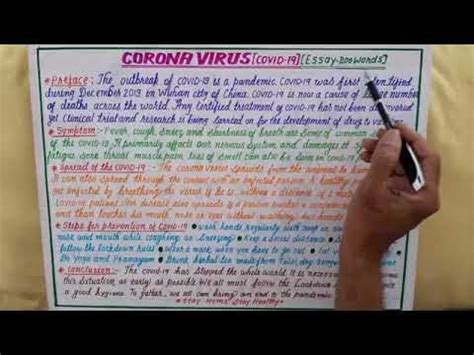 CORONA VIRUS [COVID-19] [Essay-200 Words]
* Preface: The outbreak of COVID-19 is a pandemic. COVID-19 was first identified
during December 2019 in Wuhan city of China. COVID-19 is now a cause of large number
of deaths across the world. Any certified treatment of COVID-19 has not been discovered
yet. Clinical trial and research is being carried on for the development of drugs &
* Symptom: Fever, cough, and of breath are some of common
of the COVID-19. It primarily affects our system and damages it.
fatigue, sore throat, muscle pain, loss of smell can also be seen in COVID-19
* Spread of the COVID-19: The corona virus spreads from the to
can also spread through the contact with an infected person. A healthy
get infected by breathing the virus if he is within a distance of 1
COVID-19 patient. This disease also spreads if a person touches a
and then touches his mouth, nose or eyes without washing
* Steps for prevention of COVID-19: • wash hands regularly with soap or
nose and mouth while coughing or sneezing • Keep a social distance
follow the lockdown rules • wear mask when you have to go out •
Do Yoga and Pranayam • Drink herbal tea made from Tulsi,
* Conclusion: The COVID-19 has stopped the whole world. It is
this situation as early as possible. We all must follow the Lockdown
a good hygiene. To gether, we all can bring an end to the pandemic
Stay Home, Stay Healthy